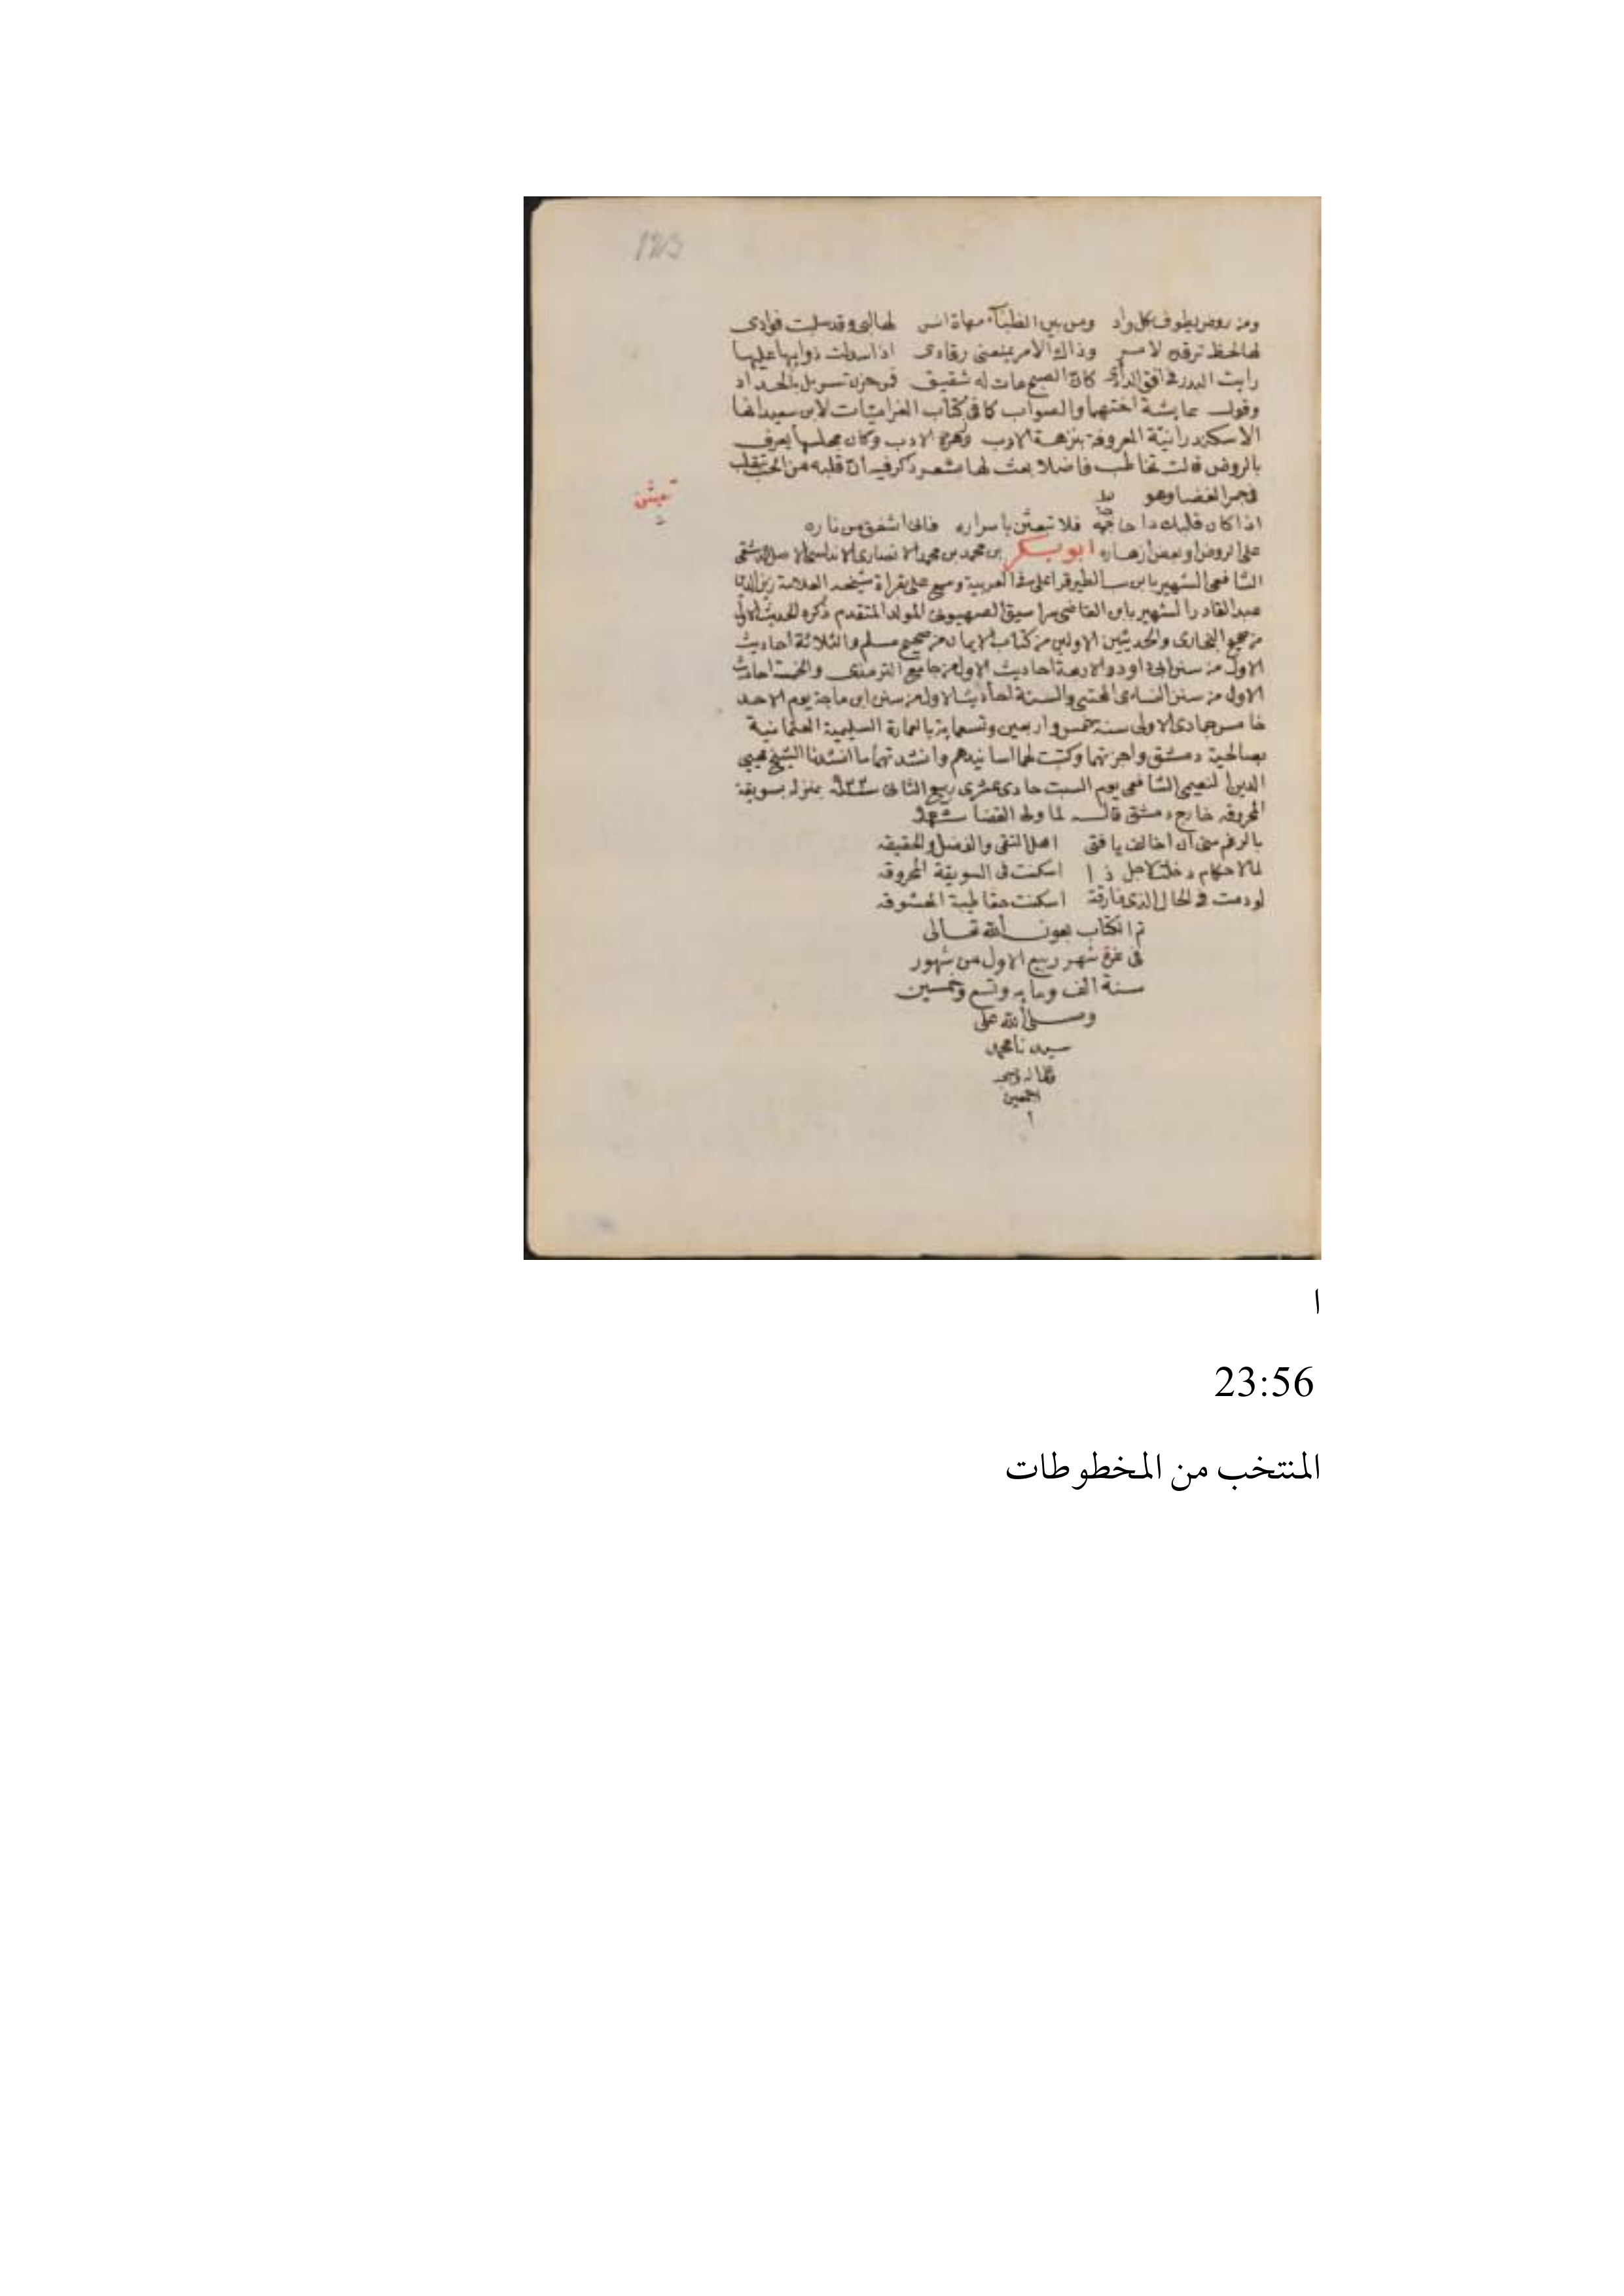 123
ومن روض يطوف بكل واد ومن بين الظباء مهاة انس لها لبى وقد سلبت فوادى
لها لحظ ترقده لامر وذاك الامر يمنعنى رقادى اذا سدلت ذوايبها عليها
رايت البدر فى افق الدآدى كان الصبح مات له شقيق فمن حزن تسربل بالحداد
وقول عايشة اختهما والصواب كما فى كتاب الغراميات لابن سعيد انها
الاسكندرانية المعروفة بنزهة الادب وزهرة الادب وكان مجلسها يعرف
بالروض قالت تخاطب فاضلا بعث لها بشعر ذكر فيه ان قلبه من الحب تقلب
فى جمر الغضا وهو
تعبثن
اذا كان قلبك ذا جاحمه فلا تبعثن باسراره فانى اشفق من ناره
على الروض او بعض ازهاره ابو بكر بن محمد بن محمد الانصارى الاندلسى الاصل الدمشقى
الشافعى الشهير بابن الطير قرا على فى العربية وسمع على بقراة شيخه العلامة زين الدين
عبد القادر الشهير بابن القاضى الصهيونى المولد المتقدم ذكره الحديث الاول
من صحيح البخارى والحديثين الاولين من كتاب الايمان من صحيح مسلم والثلاثة احاديث
الاول من سنن ابى داود والاربعة احاديث الاول من جامع الترمذى والخمسة احاديث
الاول من سنن النساى المجتبى والستة احاديث الاول من سنن ابن ماجة يوم الاحد
خامس جمادى الاولى سنة خمس واربعين وتسعماية بالعمارة السليمية العثمانية
بصالحية دمشق واجزتهما وكتبت لهما اسانيدهم وانشدتهما ما انشدنا الشيخ محيى
الدين النعيمى الشافعى يوم السبت حادى عشرى ربيع الثانى بمنزله بسويقة
المحروقه خارج دمشق قال لما ولى القضا
بالرغم منى ان اخالف يا فتى اهل التقى والفضل والحقيقه
لما لاحكام دخلت لاجل ذا اسكنت فى السويقة المحروقه
لو دمت فى الحال الذى فارقته اسكنت حقا طيبة المعشوقه
تم الكتاب بعون الله تعالى
فى غرة شهر ربيع الاول من شهور
سنة الف ومايه وتسع وخمسين
وصلى الله على
سيدنا محمد
وعلى اله وصحبه
اجمعين
ا
ا
23:56
المنتخب من المخطوطات